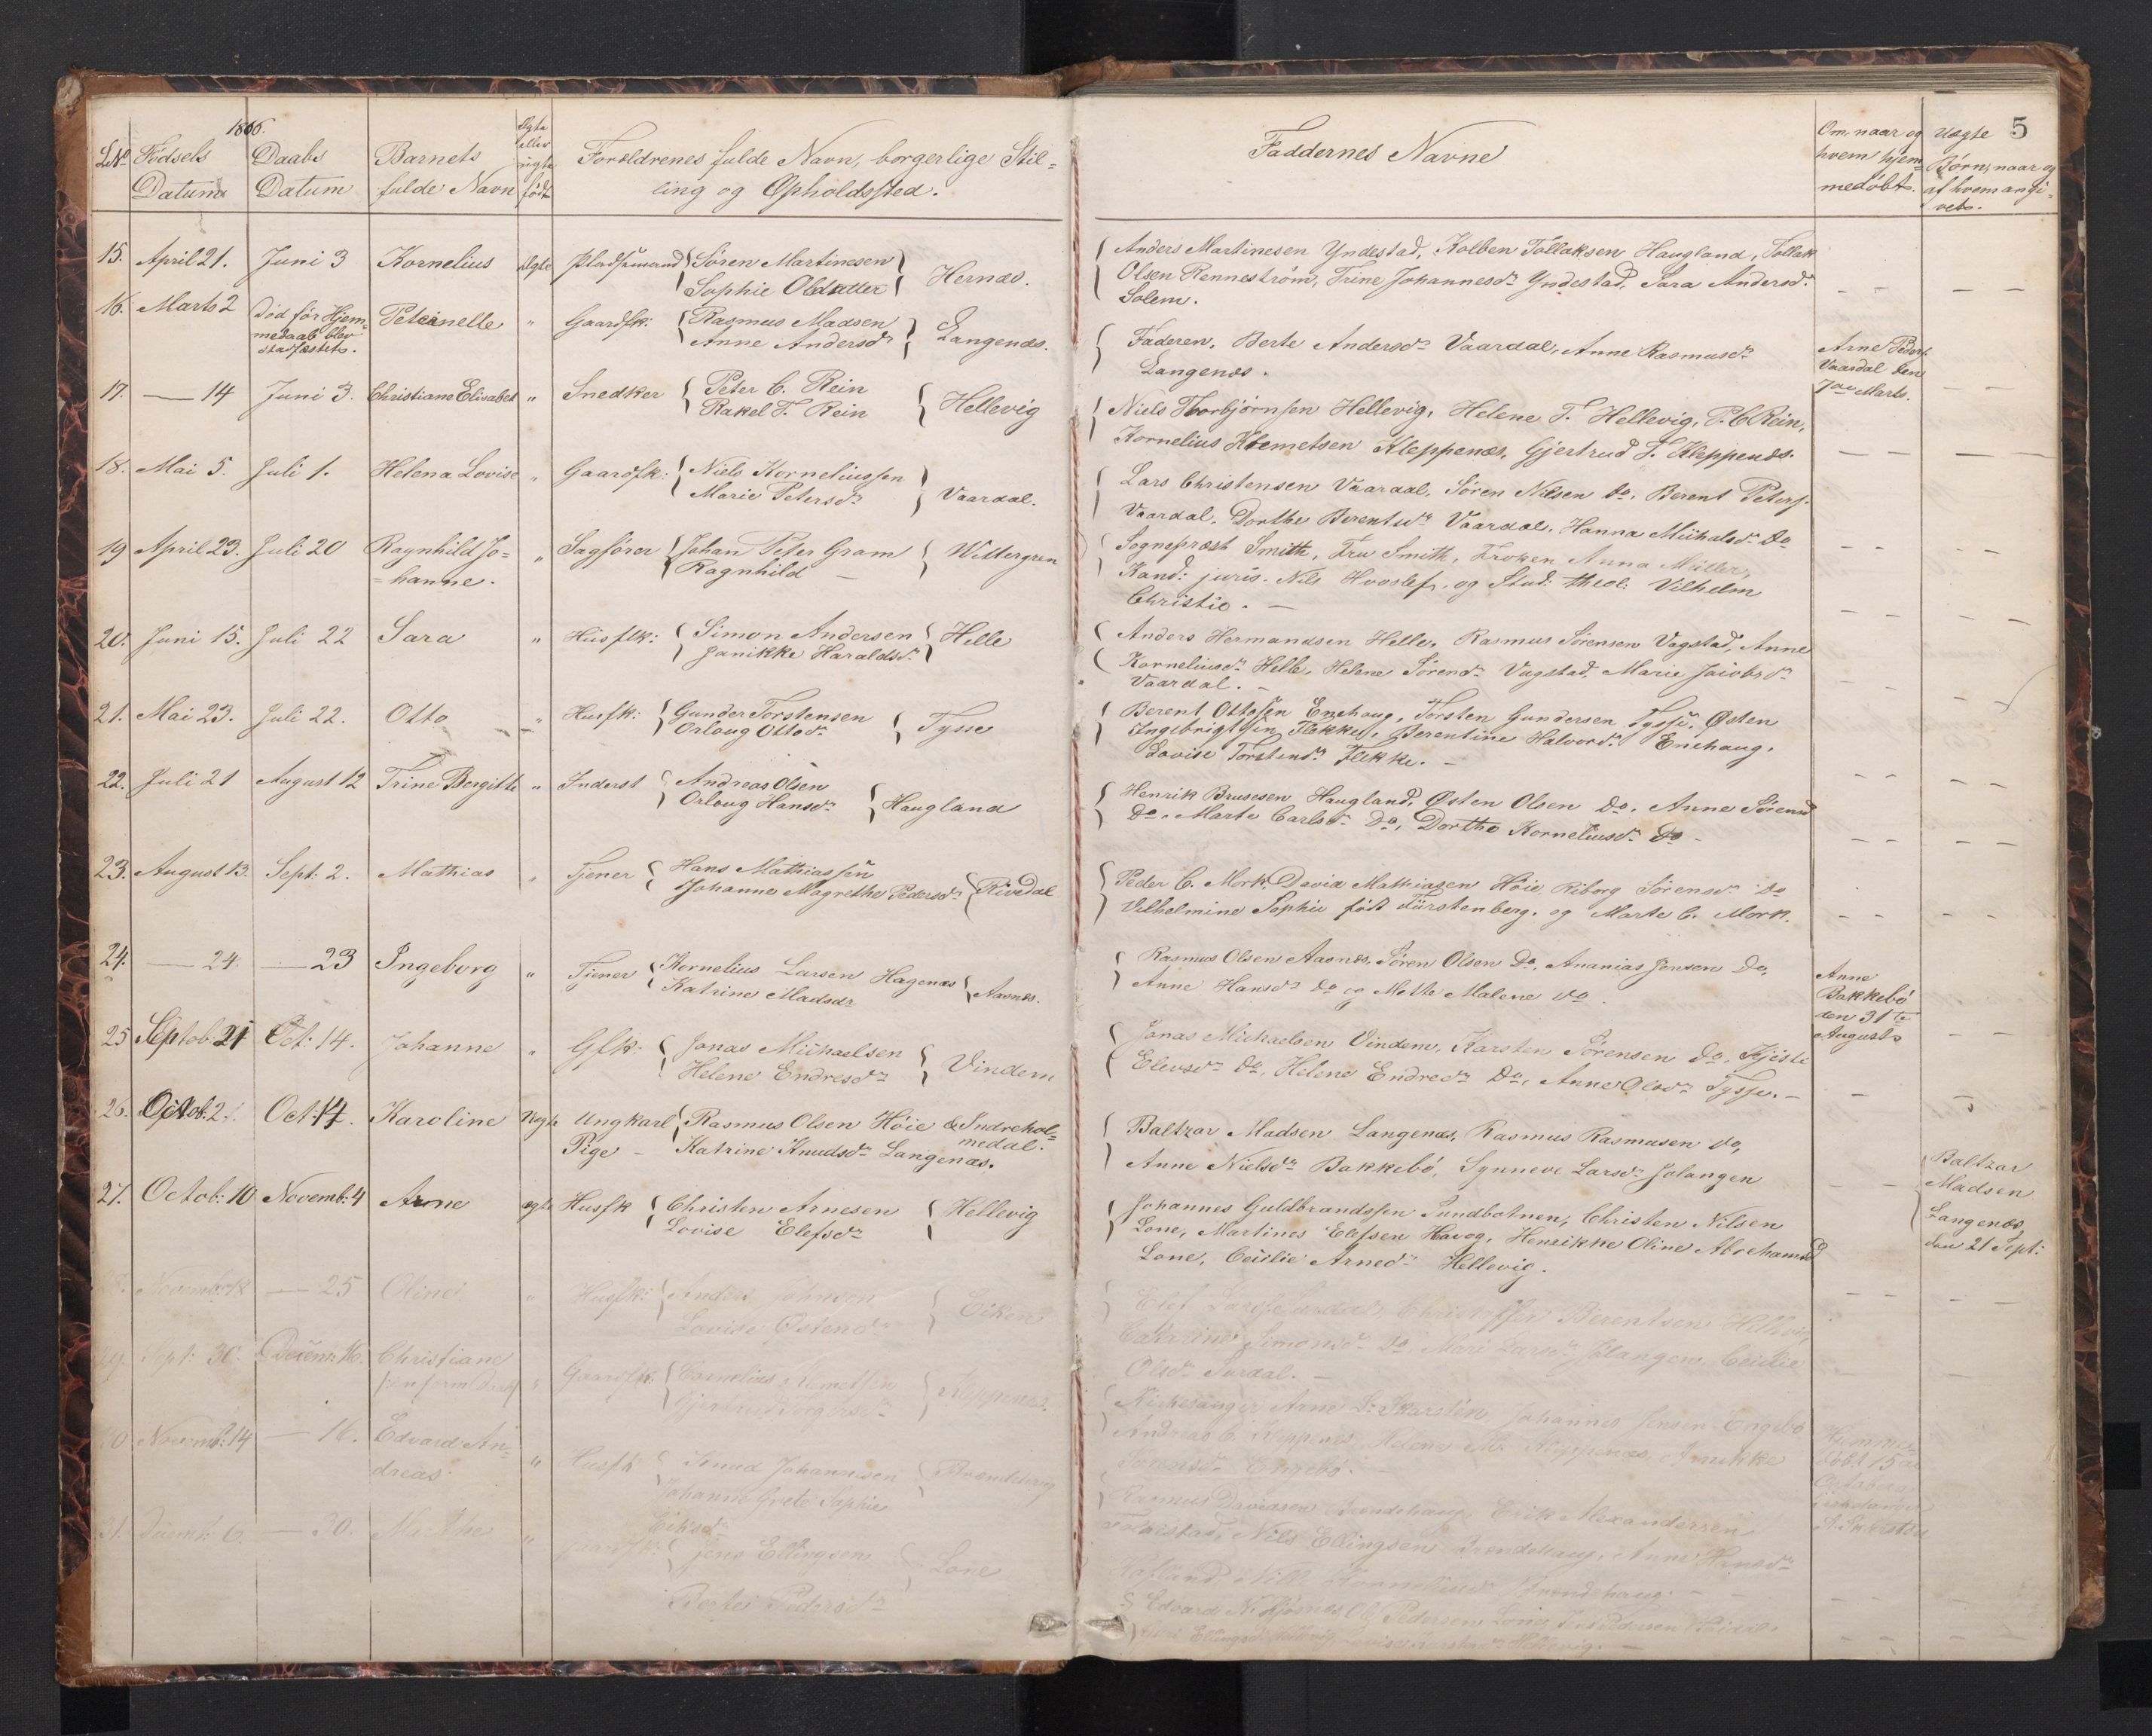 1866.
LNo
Fødsels
Datum
Daabs
Datum
Barnets
fulde Navn
Ægte
eller
uægte
født
Forældrenes fulde Navn, borgerlige Stil=
ling og Opholdssted.
Faddernes Navne
Om, naar og
hvem hjem=
medøbt.
Uægte
Børn, naar og
af hvem angi=
vet.
5
15. April 21. Juni 3 Kornelius Ægte Pladsmand Søren Martinesen
Sophie Olsdatter
Hernæs.
Anders Martinesen Yndestad, Kolben Tollaksen Haugland, Tollak
Olsen Rennestrøm, Trine Johannesdr Yndestad, Sara Andersdr
Solem.
16. Marts 2 Død før Hjem=
medaab blev
stadfæstet.
Petrinelle " Gaardfk: Rasmus Madsen
Anne Andersdr
Langenæs.
Faderen, Berte Andersdr Vaardal, Anne Rasmusdr
Langenæs.
Arne Peders.
Vaardal den
7de Marts.
17. — 14 Juni 3. Christiane Elisabet " Snedker Peter C. Rein
Rakel T. Rein
Hellevig
Niels Thorbjørnsen Hellevig, Helene T. Hellevig, P. C. Rein,
Kornelius Klemetsen Kleppenæs, Gjertrud T. Kleppenæs.
18. Mai 5. Juli 1. Helena Lovise " Gaardfk: Niels Korneliussen
Marie Petersdr
Vaardal.
Lars Christensen Vaardal, Søren Nilsen do, Berent Peters.
Vaardal, Dorthe Berentsdr Vaardal, Hanna Mikkalsdr do
19 April 23. Juli 20 Ragnhild Jo=
=hanne.
" Sagfører Johan Peter Gram
Ragnhild —
Wettergren
Sogneprest Smith, Fru Smith, Frøken Anna Müller,
Kand: juris. Nils Hvoslef, og Stud: theol: Vilhelm
Christie. —
20. Juni 15. Juli 22 Sara " Husfk: Simon Andersen
Janikke Haraldsdr
Helle
Anders Hermandsen Helle, Rasmus Sørensen Vagstad, Anne
Korneliusdr Helle, Helene Sørendr Vagstad, Marie Jacobsdr
Vaardal. —
21. Mai 23. Juli 22. Otto " Husfk: Gunder Torstensen
Orloug Ottodr
Tysse
Berent Ottosen Enehaug, Torsten Gundersen Tysse, Østen
Ingebrigtsen Flekke, Berentine Halvordr Enehaug,
Lovise Torstendr Flekke. —
22. Juli 21 August 12 Trine Bergitte " Inderst Andreas Olsen
Orloug Hansdr
Haugland
Henrik Brusesen Haugland, Østen Olsen do, Anne Sørensd
do, Marte Carlsdr do, Dorthe Korneliusdr do -
23. August 13. Sept: 2. Mathias " Tjener Hans Mathiassen
Johanne Magrethe Pedersdr
Rivedal
Peder C. Mork, David Mathiasen Høie, Riborg Sørensdr do
Vilhelmine Sophie født Fürstenberg, og Marte C. Mork.
24. — 24. — 23 Ingeborg " Tjener Kornelius Larsen Hagenæs
Katrine Madsdr
Aasnæs.
Rasmus Olsen Aasnæs, Søren Olsen do, Ananias Jensen do,
Anne Hansdr do og Mette Malene do.
Anne
Bakkebø
den 31te
August.
25 Septob: 21 Oct: 14. Johanne " Gfk: Jonas Mikkaelsen
Helene Endresdr
Vindem
Jonas Mickaelsen Vindem, Karsten Sørensen do, Kjesti
Elevsdr do, Helene Endredr do, Anne Olsdr Tysse. —
26. Octob: 2. Oct: 14 Karoline Uægte Ungkarl Rasmus Olsen Høie & Indrehol=
medal.
Pige - Katrine Knudsdr Langenæs.
Baltzar Madsen Langenæs, Rasmus Rasmusen do,
Anne Nielsdr Bakkebø, Synneve Larsdr Jølangen
Baltzar
Madsen
Langenæs
den 21 Sept:
27. Octob: 10 Novemb: 4 Arne ægte Husfk Christen Arnesen
Lovise Elefsdr
Hellevig
Johannes Guldbrandssen Sundbotnen, Christen Nilsen
Lone, Martines Elefsen Havog, Henrikke Oline Abrehamsd
Lone, Cecilie Arnedr Hellevig.
28. Novemb: 18 — 25 Olinei " Husfk: Anders Johnsen
Lovise Østendr
Eiken
Elef Larsen Christoffer Berentsen Hellevig
Cathrine Simonsdr do, Mari Larsdr Jølangen, Cecilie
Olsdr Surdal. —
29 Sept: 30. Decem: 16. Christiane
" Gaardfk: Cornelius Klemetsen
Gjertrud
Kleppenæs.
Kirkesanger Arne L. Skarstén, Johannes Jensen Engebø
Andreas C. Kleppenæs, Helene M. Kleppenæs, Janikke
Engebø.
Hjemme=
døbt 15de
October
Kirkesanger
A. Skarstén
30. Novemb: 14 — 16. Edvard An=
dreas.
" Husfk Knud Johannesen
Johanne Grete Sophie
Eriksdr
Brændehaug
Rasmus Davidsen Brændehaug, Erik Alexandersen
Folkestad, Nils Ellingsen Brændehaug, Anne Hansdr
31. Decemb: 6. — 30. Marthe " Gaardfk: Jens Ellingsen
Berthe Pedersdr
Lone
Edvard N. Ole Pedersen Lone,
Hellevig. —